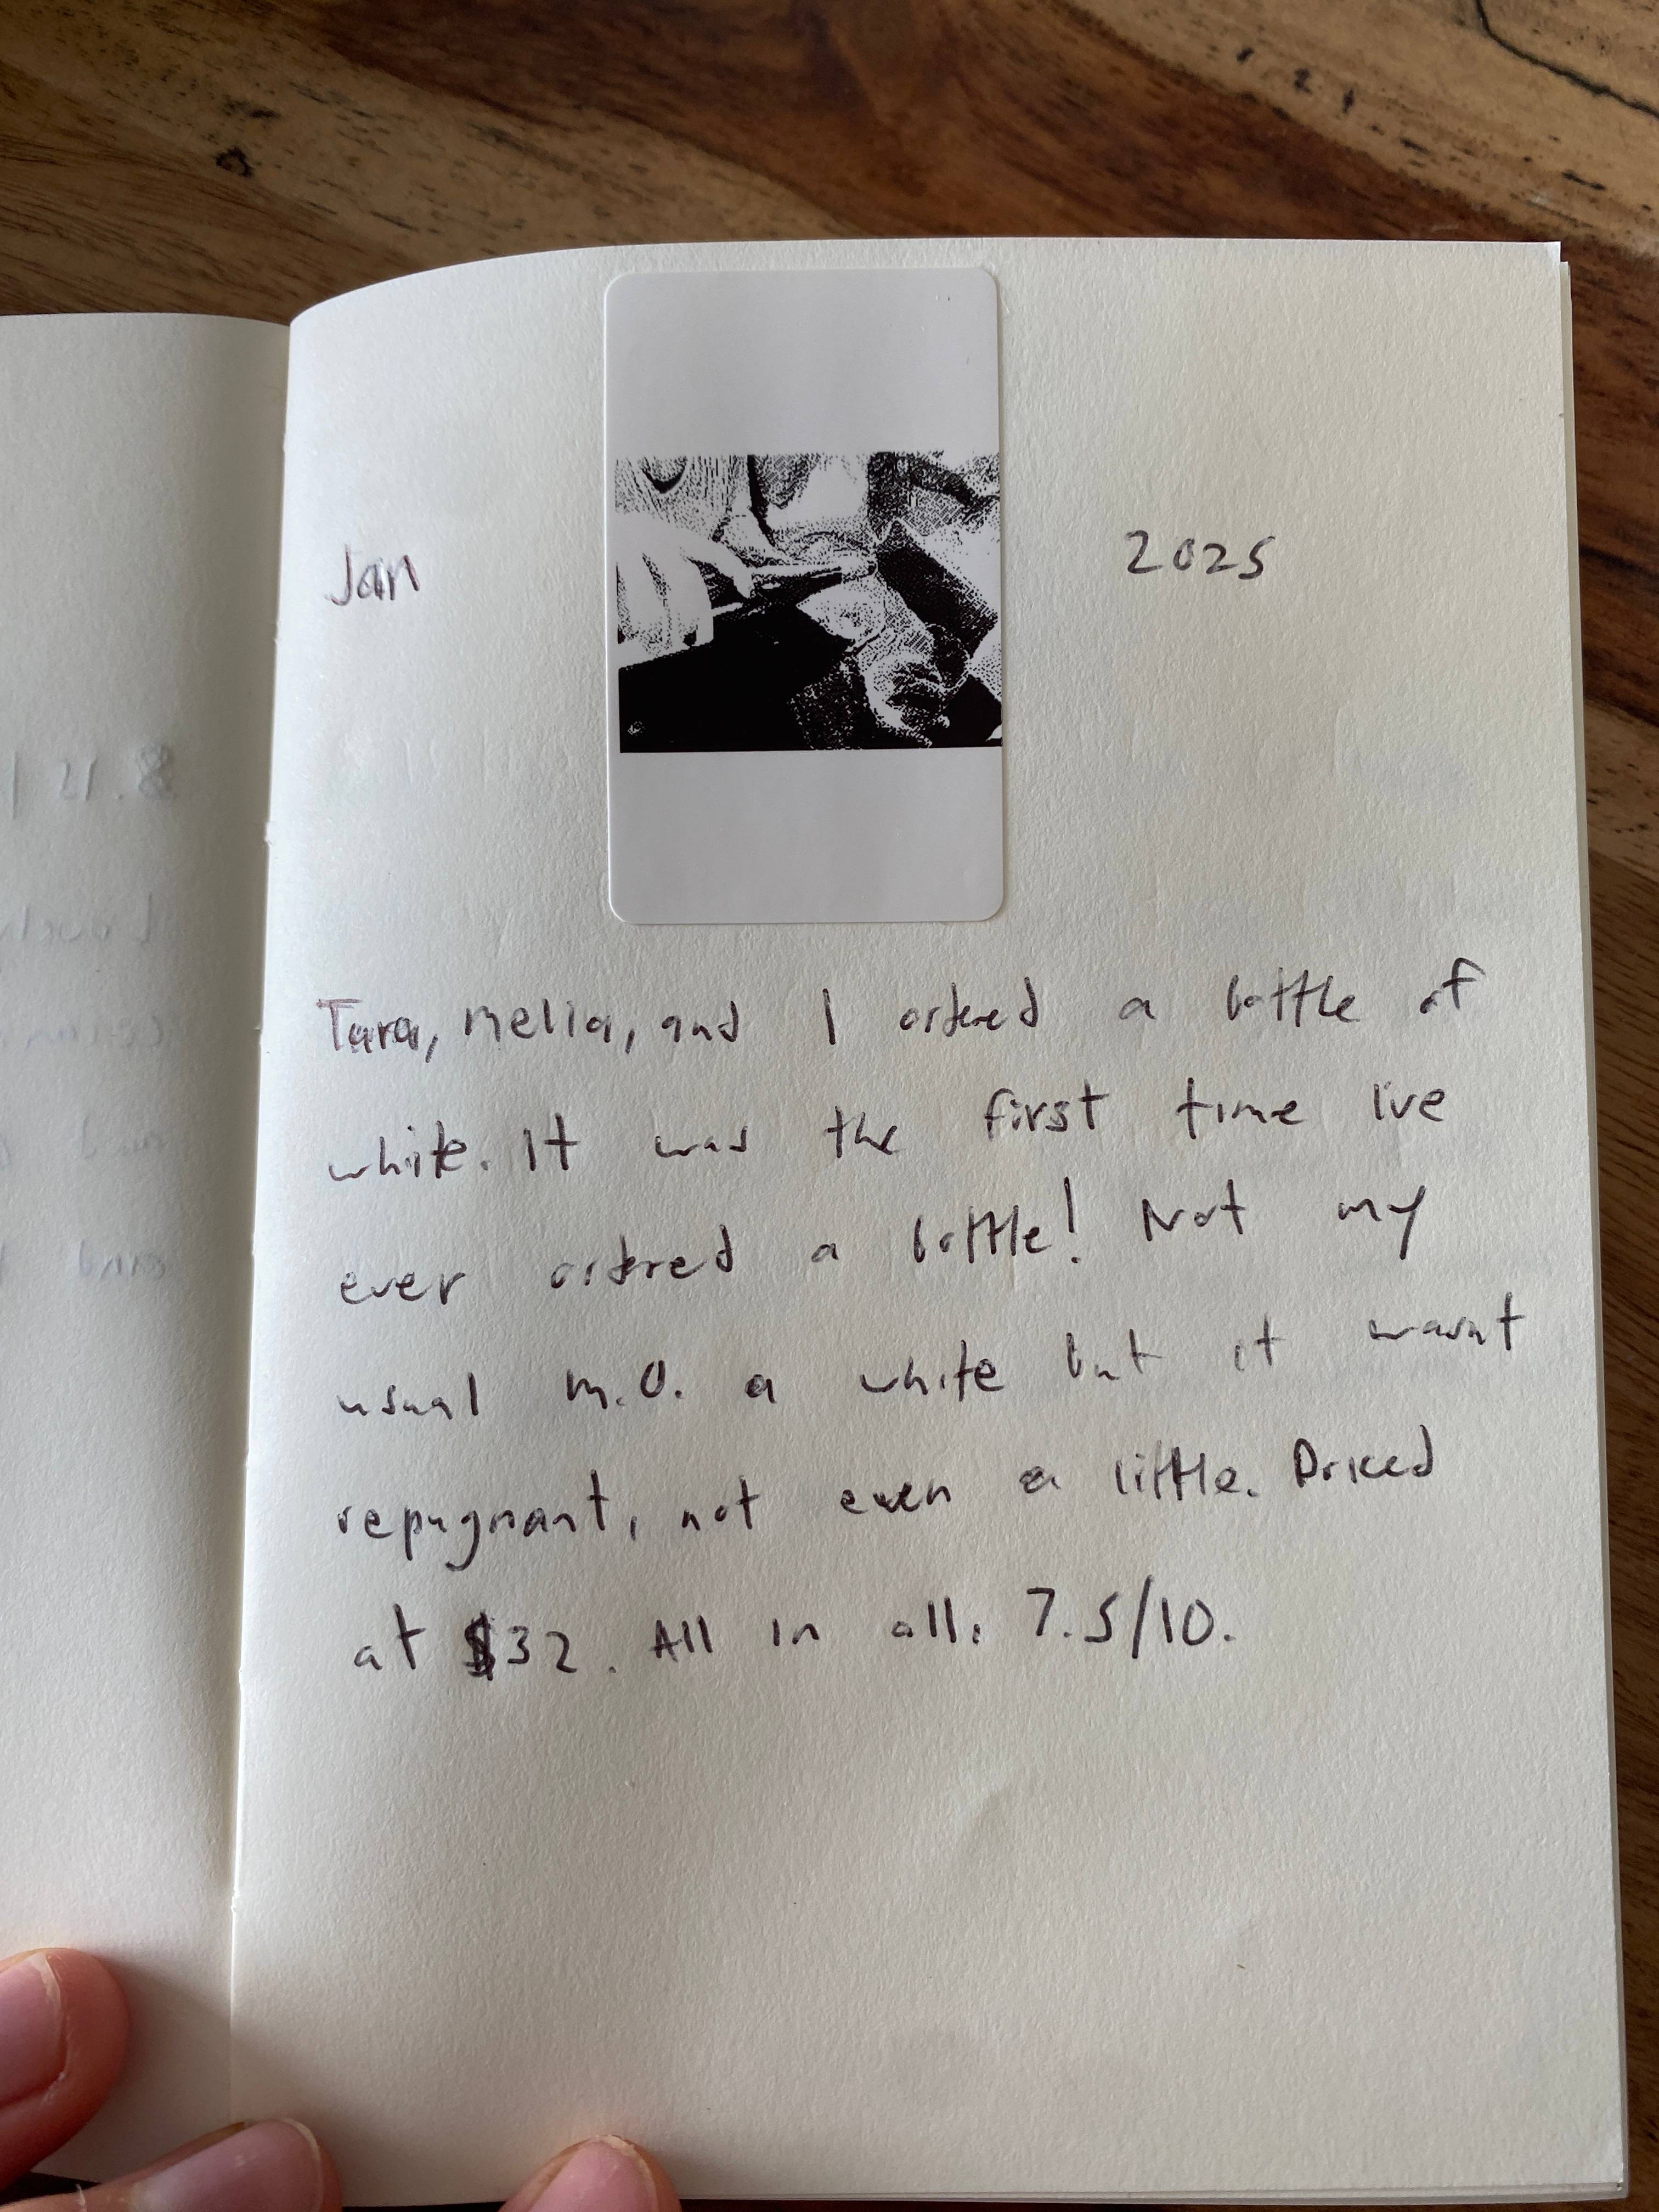 Jan 2025
Tara, Melia, and I ordered a bottle of
white. It was the first time Ive
ever ordered a bottle! Not my
usual M.O. a white but it wasnt
repugnant, not even a little. Priced
at $32. All in all: 7.5/10.